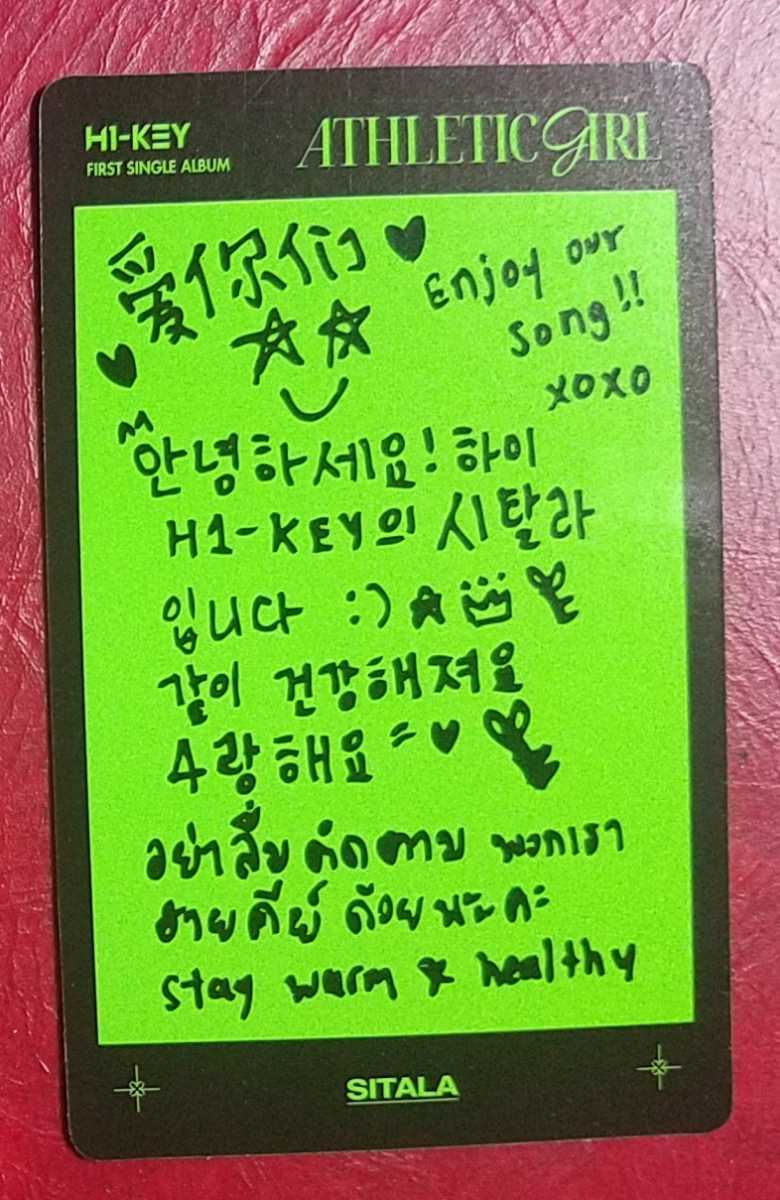 H1-KEY
FIRST SINGLE ALBUM
ATHLETIC GIRL
爱你们 ♥
Enjoy our
song!!
xoxo
안녕하세요! 하이
H1-KEY의 시탈라
입니다 :)
같이 건강해져요
4랑해요~♥
อย่าลืมติดตาม พวกเรา
ฮายคีย์ ด้วยนะคะ
stay warm & healthy
SITALA